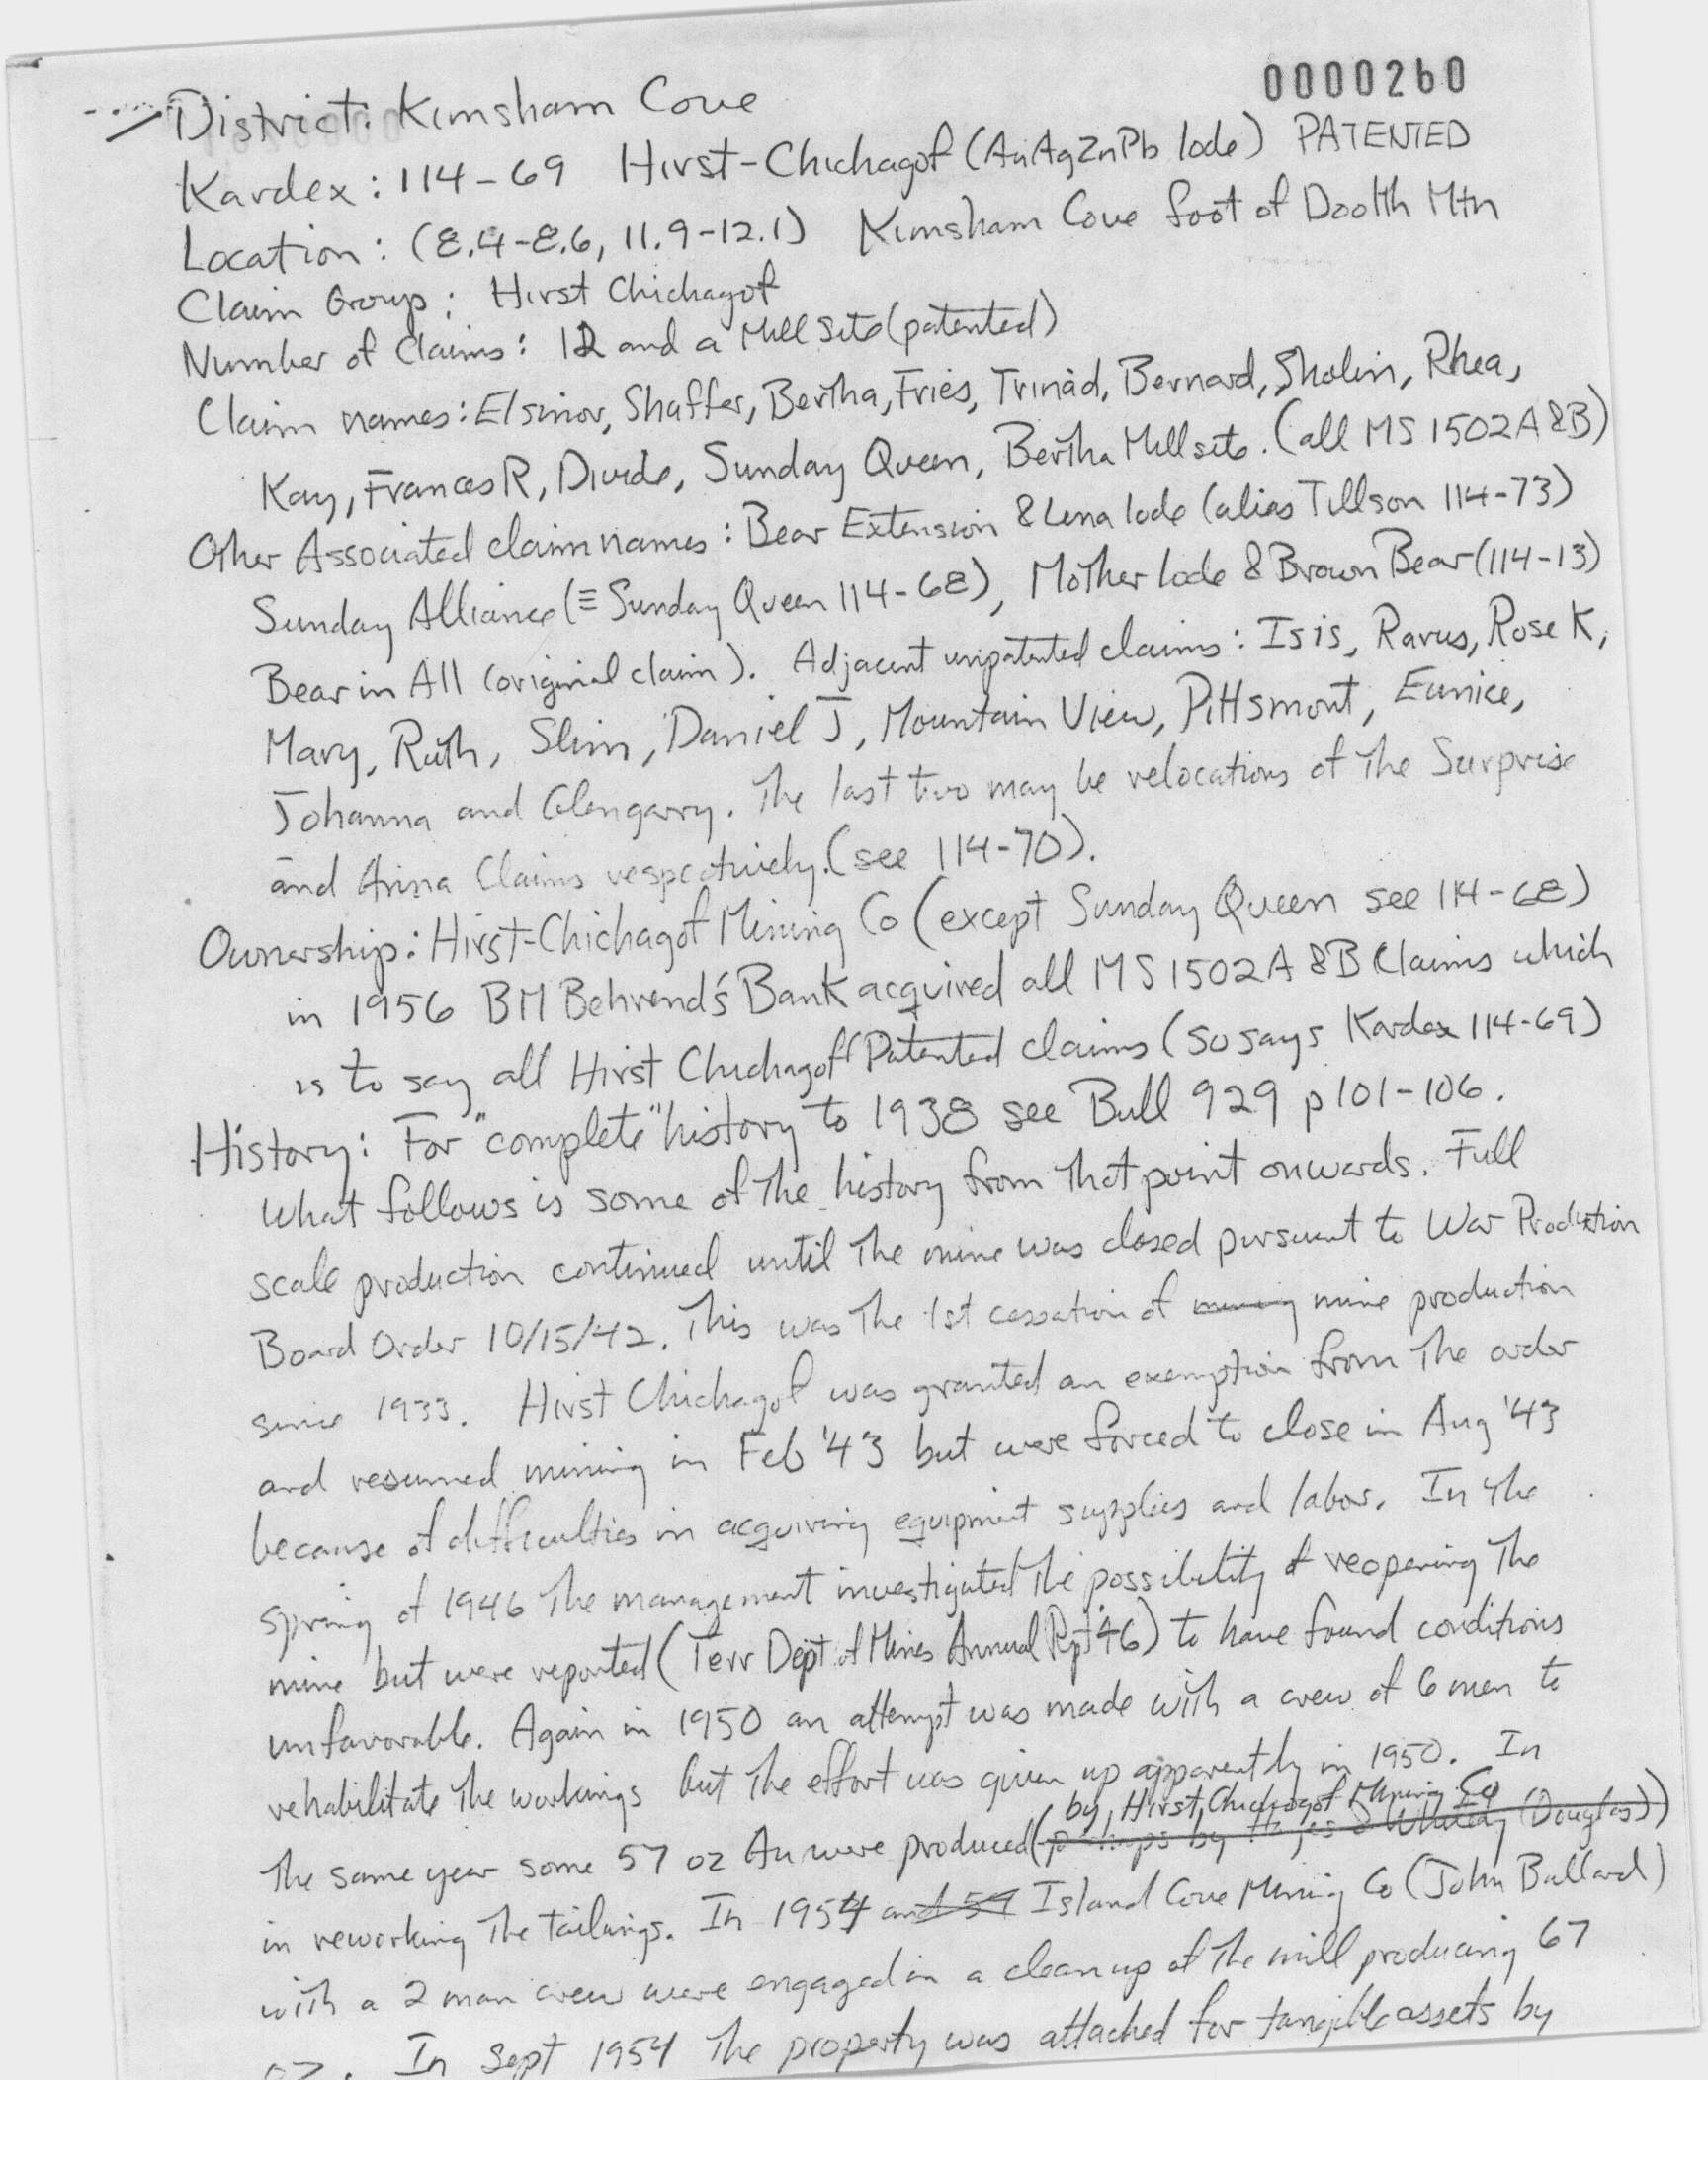 0000260
District: Kimsham Cove
Kardex: 114-69 Hirst-Chichagof (AuAgZnPb lode) PATENTED
Location: (8.4-8.6, 11.9-12.1) Kimsham Cove foot of Doolth Mtn
Claim Group: Hirst Chichagof
Number of Claims: 12 and a Mill Site (patented)
Claim names: Elsinor, Shaffer, Bertha, Fries, Trinad, Bernard, Sholin, Rhea,
Kay, Frances R, Divide, Sunday Queen, Bertha Millsite. (all MS 1502A&B)
Other Associated claim names: Bear Extension & Lena lode (alias Tillson 114-73)
Sunday Alliance (≡ Sunday Queen 114-68), Mother lode & Brown Bear (114-13)
Bear in All (original claim). Adjacent unpatented claims: Isis, Rarus, Rose K,
Mary, Ruth, Slim, Daniel J, Mountain View, Pittsmont, Eunice,
Johanna and Glengarry. The last two may be relocations of The Surprise
and Anna Claims respectively. (see 114-70).
Ownership: Hirst-Chichagof Mining Co (except Sunday Queen see 114-68)
in 1956 BM Behrend's Bank acquired all MS 1502A &B Claims which
is to say all Hirst Chichagof Patented claims (so says Kardex 114-69)
History: For "complete" history to 1938 see Bull 929 p 101-106.
What follows is some of The history from That point onwards. Full
scale production continued until The mine was closed pursuant to War Production
Board Order 10/15/42. This was The 1st cessation of mining mine production
since 1933. Hirst Chichagof was granted an exemption from The order
and resumed mining in Feb '43 but were forced to close in Aug '43
because of difficulties in acquiring equipment supplies and labor. In The
spring of 1946 The management investigated The possibility of reopening The
mine but were reported (Terr Dept of Mines Annual Rpt '46) to have found conditions
unfavorable. Again in 1950 an attempt was made with a crew of 6 men to
rehabilitate The workings but The effort was given up apparently in 1950. In
by Hirst Chichagof Mining Co
The same year some 57 oz Au were produced ( by & (Douglas))
in reworking The tailings. In 1954 and 54 Island Cove Mining Co (John Bullard)
with a 2 man crew were engaged in a cleanup of The mill producing 67
oz. In Sept 1954 The property was attached for tangible assets by